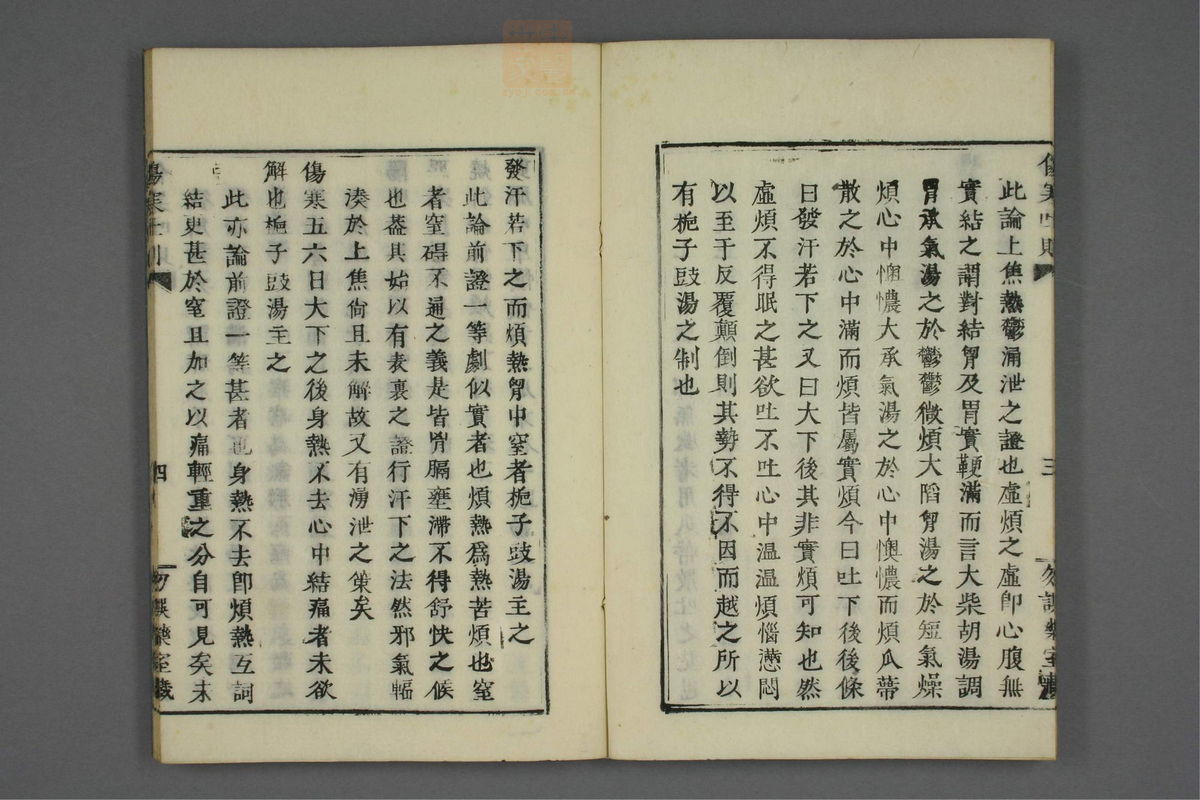 此論上焦熱鬱漏泄之證也虛煩之虛卽心腹無
實結之謂對結胷及胃實鞕滿而言大柴胡湯調
胃承氣湯之於鬱鬱微煩大陷胷湯之於短氣燥
煩心中懊憹大承氣湯之於心中懊憹而煩瓜蔕
散之於心中滿而煩皆屬實煩今曰吐下後後條
曰發汗若下之又曰大下後其非實煩可知也然
虛煩不得眠之甚欲吐不吐心中温温煩惱懑悶
以至于反覆顚倒則其勢不得不因而越之所以
有梔子豉湯之制也
三
發汗若下之而煩熱胷中窒者梔子豉湯主之
此論前證一等劇似實者也煩熱爲熱苦煩也窒
者窒碍不通之義是皆胷膈壅滯不得舒快之候
也葢其始以有表裏之證行汗下之法然邪氣輻
湊於上焦尙且未解故又有湧泄之策矣
傷寒五六日大下之後身熱不去心中結痛者未欲
解也梔子豉湯主之
此亦論前證一等甚者也身熱不去卽煩熱互詞
結更甚於窒且加之以痛輕重之分自可見矣未
四